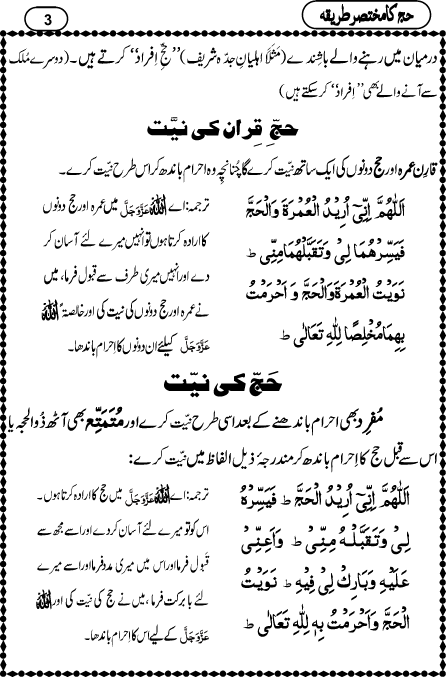 حج کا مختصر طریقہ
3
درمیان میں رہنے والے باشندے (مَثَلًا اہلیانِ جدّہ شریف) ’’حجِّ اِفراد‘‘ کرتے ہیں۔ (دوسرے مُلک
سے آنے والے بھی ’’اِفراد‘‘ کر سکتے ہیں)
حجِّ قِران کی نیّت
قارِن عمرہ اور حج دونوں کی ایک ساتھ نیّت کرے گا چُنانچِہ وہ احرام باندھ کر اس طرح نیّت کرے۔
اَللّٰهُمَّ اِنِّیْۤ اُرِیْدُ الْعُمْرَةَ وَالْحَجَّ
فَیَسِّرْهُمَا لِیْ وَتَقَبَّلْهُمَا مِنِّیْ ط
نَوَیْتُ الْعُمْرَةَ وَالْحَجَّ وَ اَحْرَمْتُ
بِهِمَا مُخْلِصًا لِلّٰهِ تَعَالٰی ط
ترجمہ: اے اللہ عَزَّوَجَلَّ میں عمرہ اور حج دونوں
کا ارادہ کرتا ہوں تُو انہیں میرے لئے آسان کر
دے اور انہیں میری طرف سے قبول فرما، میں
نے عمرہ اور حج دونوں کی نیت کی اور خالصۃً اللہ
عَزَّوَجَلَّ کیلئے ان دونوں کا اِحرام باندھا۔
حَجّ کی نیّت
مُفرِد بھی احرام باندھنے کے بعد اسی طرح نیّت کرے اور مُتَمَتِّع بھی آٹھ ذُوالحجہ یا
اس سے قبل حج کا اِحرام باندھ کر مندرجۂ ذیل الفاظ میں نیّت کرے:
اَللّٰهُمَّ اِنِّیْۤ اُرِیْدُ الْحَجَّ ط فَیَسِّرْهُ
لِیْ وَتَقَبَّلْهُ مِنِّیْ ط وَاَعِنِّیْ
عَلَیْهِ وَبَارِكْ لِیْ فِیْهِ ط نَوَیْتُ
الْحَجَّ وَاَحْرَمْتُ بِهٖ لِلّٰهِ تَعَالٰی ط
ترجمہ: اے اللہ عَزَّوَجَلَّ میں حج کا ارادہ کرتا ہوں۔
اس کو تو میرے لئے آسان کر دے اور اسے مجھ سے
قبول فرما اور اس میں میری مدد فرما اور اسے میرے
لئے بابرکت فرما، میں نے حج کی نیّت کی اور اللہ
عَزَّوَجَلَّ کے لیے اس کا اِحرام باندھا۔